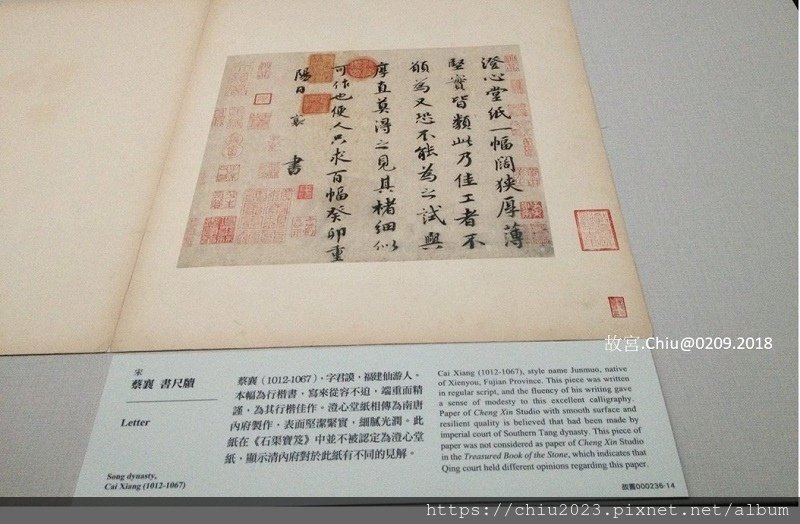 澄心堂紙一幅闊狹厚薄
堅實皆類此乃佳工者不
願為又恐不能為之試與
厚直莫得之見其楮細似
可作也便人只求百幅癸卯重
陽日 襄 書
故宮.Chiu@0209.2018
宋
蔡襄 書尺牘
Letter
Song dynasty,
Cai Xiang (1012-1067)
蔡襄(1012-1067),字君謨,福建仙游人。
本幅為行楷書,寫來從容不迫,端重而精
謹,為其行楷佳作。澄心堂紙相傳為南唐
內府製作,表面堅潔緊實,細膩光潤。此
紙在《石渠寶笈》中並不被認定為澄心堂
紙,顯示清內府對於此紙有不同的見解。
Cai Xiang (1012-1067), style name Junmuo, native
of Xienyou, Fujian Province. This piece was written
in regular script, and the fluency of his writing gave
a sense of modesty to this excellent calligraphy.
Paper of Cheng Xin Studio with smooth surface and
resilient quality is believed that had been made by
imperial court of Southern Tang dynasty. This piece of
paper was not considered as paper of Cheng Xin Studio
in the Treasured Book of the Stone, which indicates that
Qing court held different opinions regarding this paper.
故書000236-14
https://chiu2023.pixnet.net/album